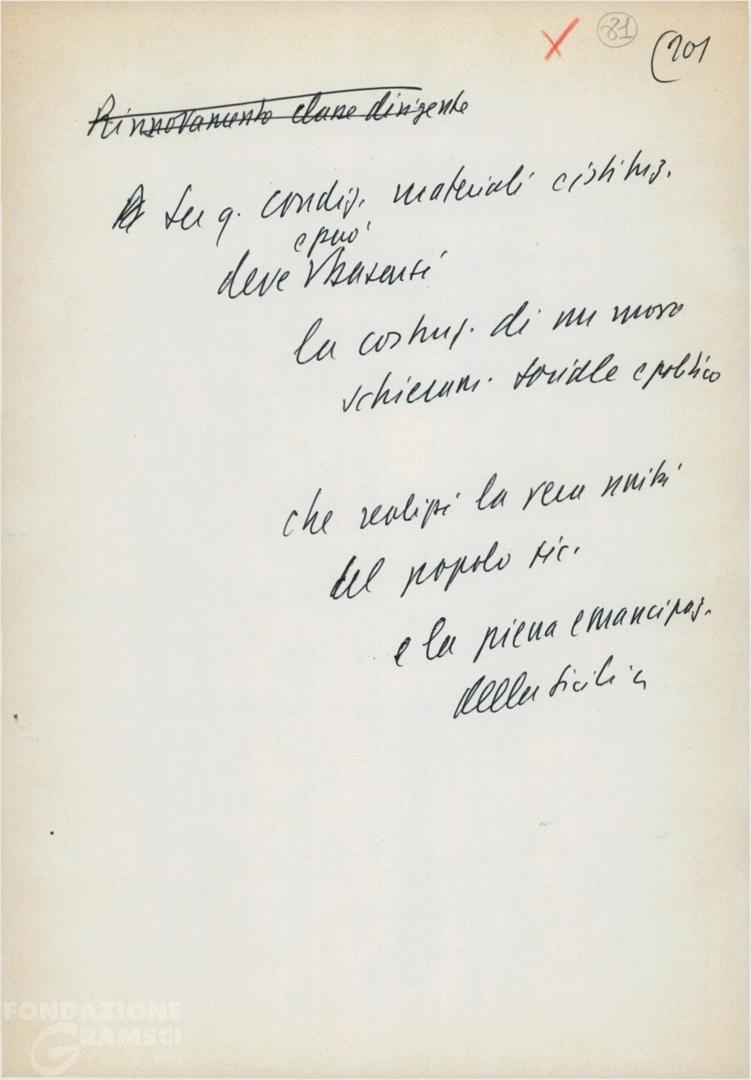 81
(201
Rinnovamento classe dirigente
Su q. condiz. materiali e istituz.
e può
deve basarsi
la costruz. di un novo
schieram. sociale e politico
che realizzi la vera unità
del popolo sic.
e la piena emancipaz.
della Sicilia
FONDAZIONE
GRAMSCI